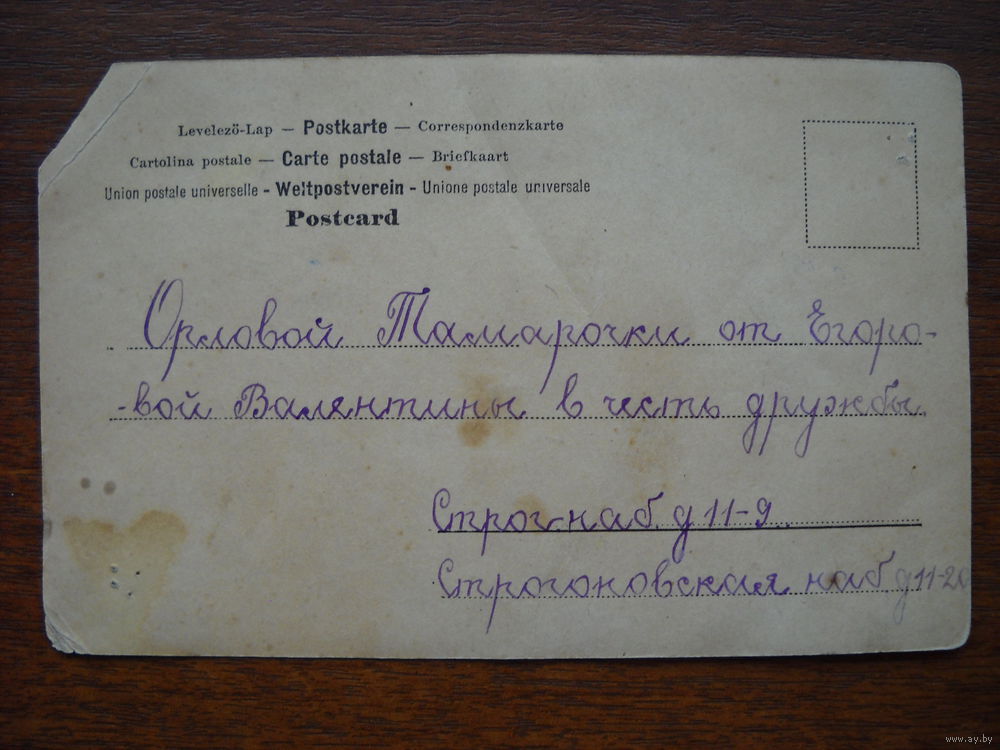 Levelező-Lap — Postkarte — Correspondenzkarte
Cartolina postale — Carte postale — Briefkaart
Union postale universelle - Weltpostverein - Unione postale universale
Postcard
Орловой Тамарочки от Егоро-
-вой Валентины в честь дружбы
Строг наб. д 11-9
Строгоновская наб д 11-20
www.ay.by